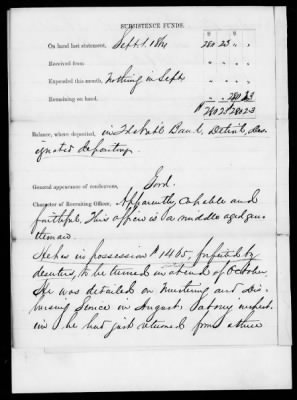 SUBSISTENCE FUNDS.
On hand last statement, Sept. 1. 1864 280 23 " "
Received from " " " "
Expended this month, Nothing in Sept. " " " "
Remaining on hand, " " 280 23
$280 23 280 23
Balance, where deposited, in 1st Nat'l Bank, Detroit, des-
ignated depository.
General appearance of rendezvous, Good.
Character of Recruiting Officer, Apparently, capable and
faithful. This officer is a middle aged gen-
tleman.
He has in possession $1405, forfeited by
deserters, to be turned in at end of October.
He was detailed on Mustering and Dis-
bursing Service in August. At my inspect-
ion he had just returned from a three